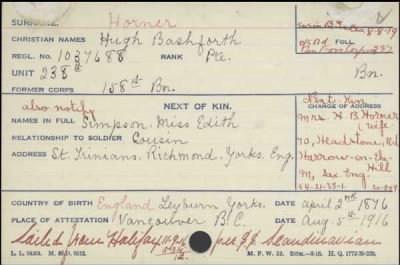 SURNAME Horner
CHRISTIAN NAMES Hugh Bashforth
REGL. No. 1037688 RANK Pte. FULL
UNIT 238th Bn.
FORMER CORPS 158th Bn.
also notify NEXT OF KIN. Next Kin
CHANGE OF ADDRESS
NAMES IN FULL Simpson, Miss Edith Mrs H B Horner
RELATIONSHIP TO SOLDIER Cousin (wife)
ADDRESS St. Trinians, Richmond, Yorks, Eng. 70, Headstone, Rd
Harrow-on-the-
Hill
M, Sex Eng
COUNTRY OF BIRTH England Leyburn Yorks. DATE April 2nd 1876
PLACE OF ATTESTATION Vancouver B.C. DATE Aug. 5th 1916
Sailed from Halifax 11-9-16 per S.S. Scandinavian
M. F. W. 22.